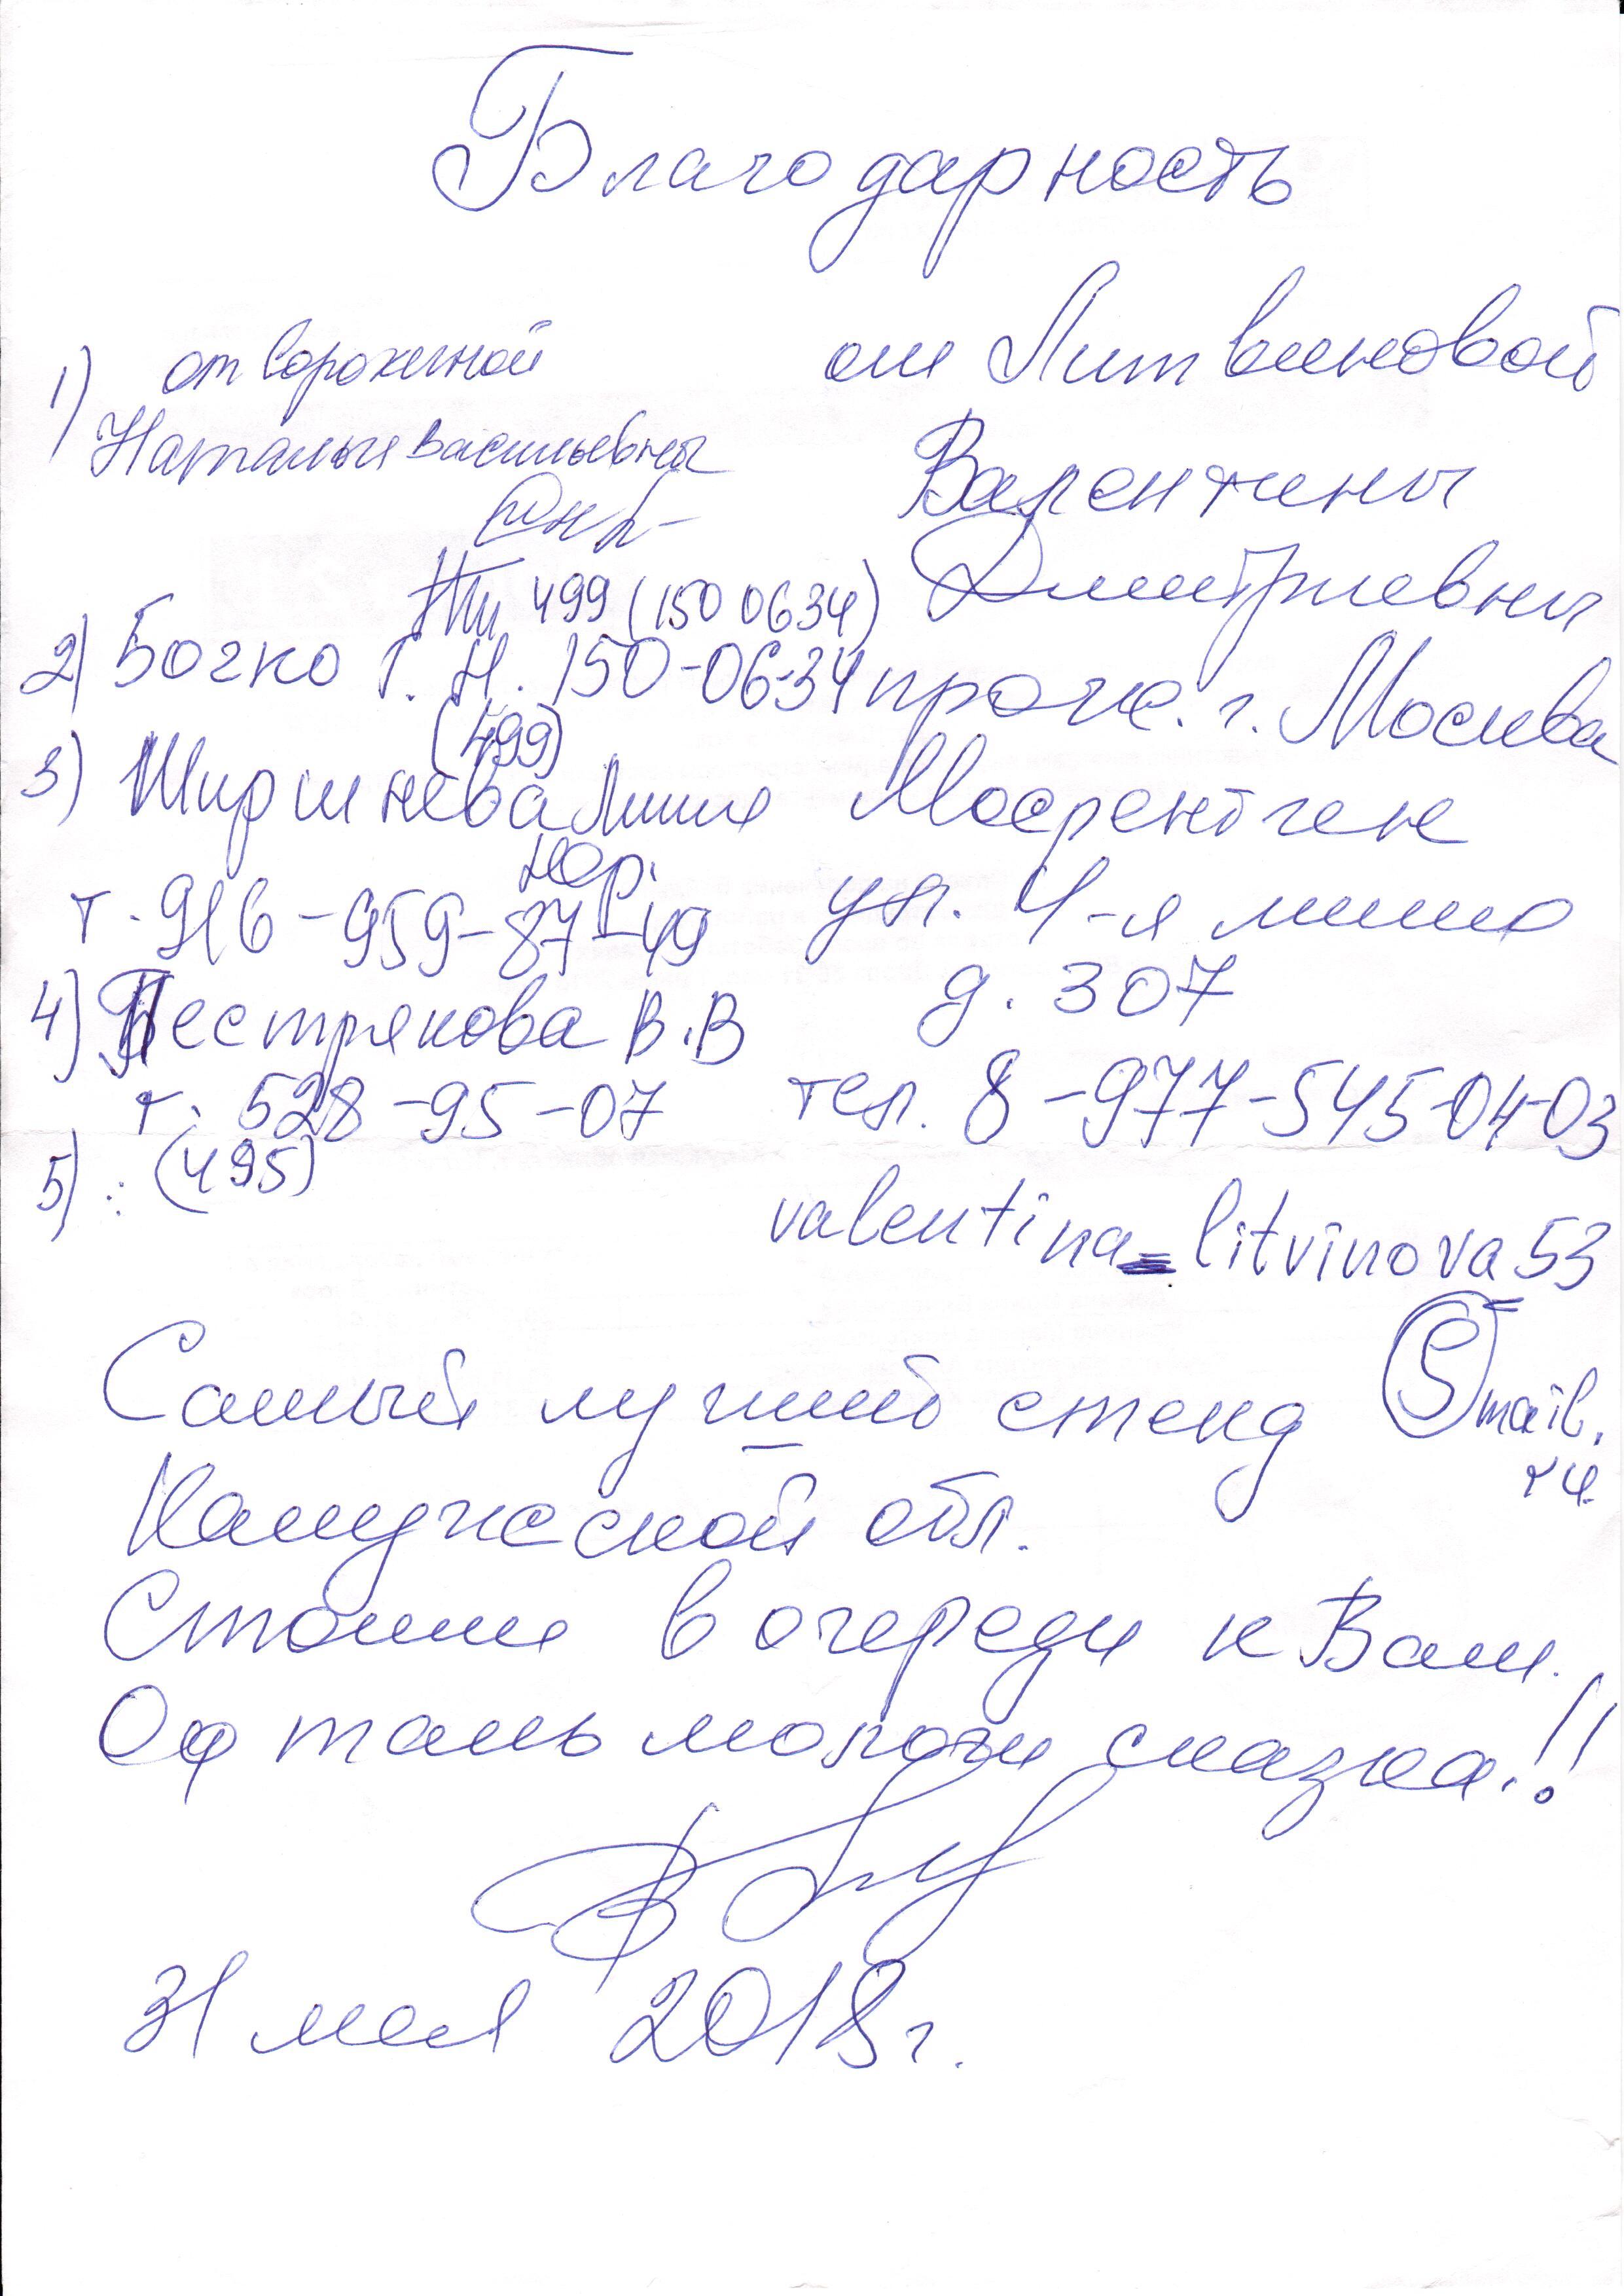 Благодарность
от Литвиновой
Валентины
Дмитриевны
прож. г. Москва
Мосрентген
ул. 4-я линия
д. 307
тел. 8-977-545-04-03
valentina_litvinova53
@mail.
ru
1) от Сорокиной
Натальи Васильевны
499 (150 0634)
2) Бочко Г. Н. 150-06-34
(499)
3) Ширшнева Лилия
Юр.
т. 916-959-87-49
4) Пестрякова В.В
т. 528-95-07
(495)
5)
Самый лучший стенд
Калужской обл.
Стоим в очереди к Вам.
молочн сказка!!
31 мая 2018 г.